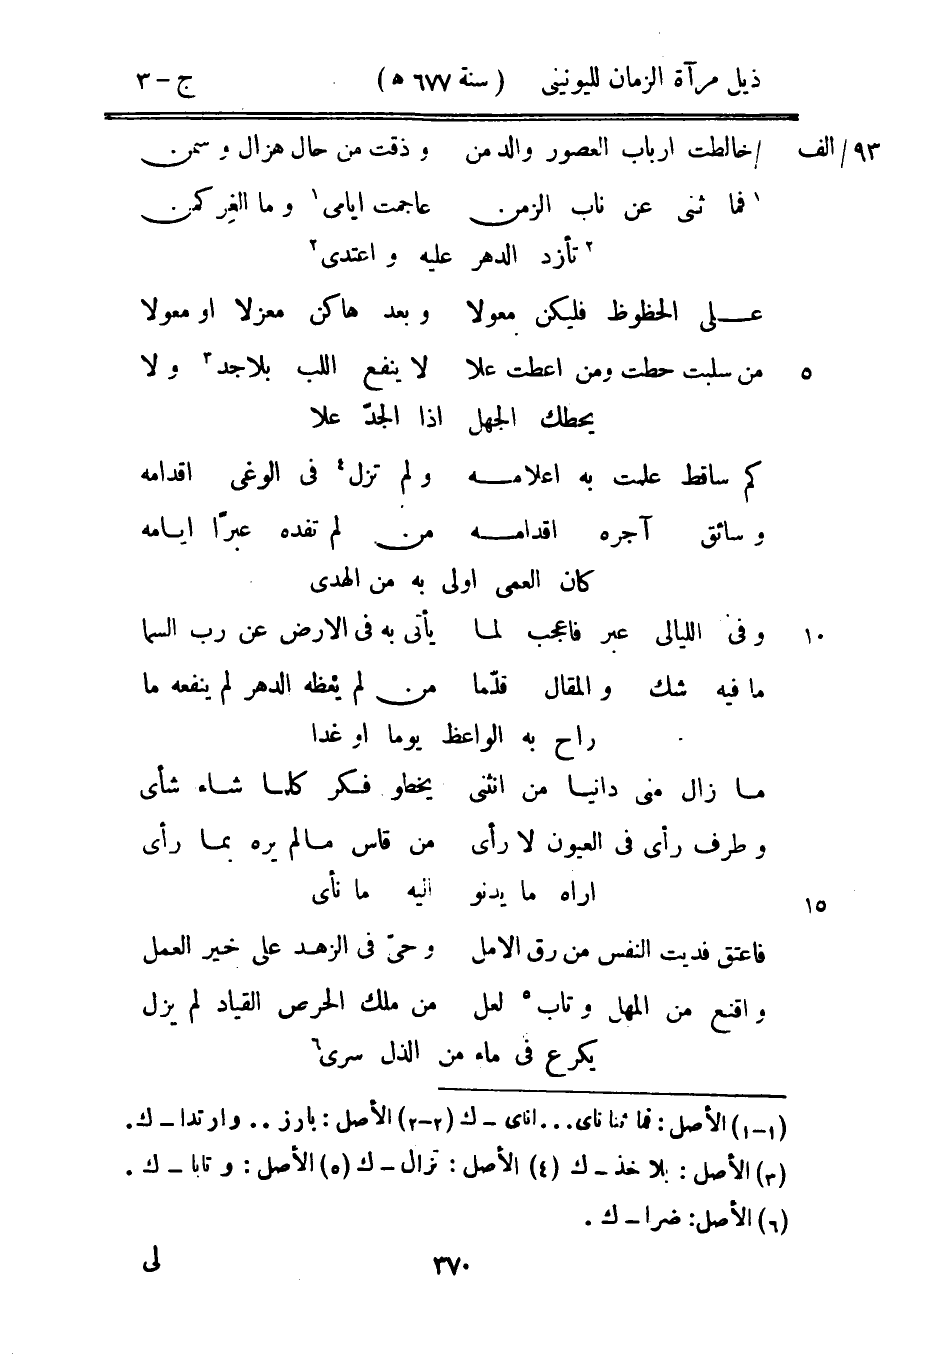 ذيل مرآة الزمان لليونينى (سنة ٦٧٧ ه) ج - ٣
٩٣/الف /خالطت ارباب العصور والدمن و ذقت من حال هزال و سمن
١ فما ثنى عن ناب الزمن عاجمت ايامى ١ و ما الغر كمن
٢ تأزد الدهر عليه و اعتدى ٢
عـلى الحظوظ فليكن معولا و بعد هاكن معزلا او معولا
٥ من سلبت حطت ومن اعطت علا لا ينفع اللب بلاجد ٣ و لا
يحطك الجهل اذا الجدّ علا
كم ساقط علمت به اعلامـه و لم تزل ٤ فى الوغى اقدامه
و سائق آجره اقدامـه من لم تفده عبرًا ايـامه
كان العمى اولى به من الهدى
١٠ و فى الليالى عبر فاعجب لمـا يأتى به فى الارض عن رب السما
ما فيه شك و المقال قلّما من لم يعظه الدهر لم ينفعه ما
راح به الواعظ يوما او غدا
مـا زال منى دانيـا من انثنى يخطو فـكر كلمـا شـاء شأى
و طرف رأى فى العيون لا رأى من قاس مـالم يره بمـا رأى
١٥ اراه ما يدنو اليه ما نأى
فاعتق فديت النفس من رق الامل و حىّ فى الزهـد على خير العمل
و اقنع من المهل و تاب ٥ لعل من ملك الحرص القياد لم يزل
يكرع فى ماء من الذل سرى ٦
(١-١) الأصل: فما ثنا ناى...اناى - ك (٢-٢) الأصل: بارز .. وارتدا - ك.
(٣) الأصل: بلا خذ - ك (٤) الأصل: تزال - ك (٥) الأصل: و تابا - ك.
(٦) الأصل: ضرا - ك.
٣٧٠ لى